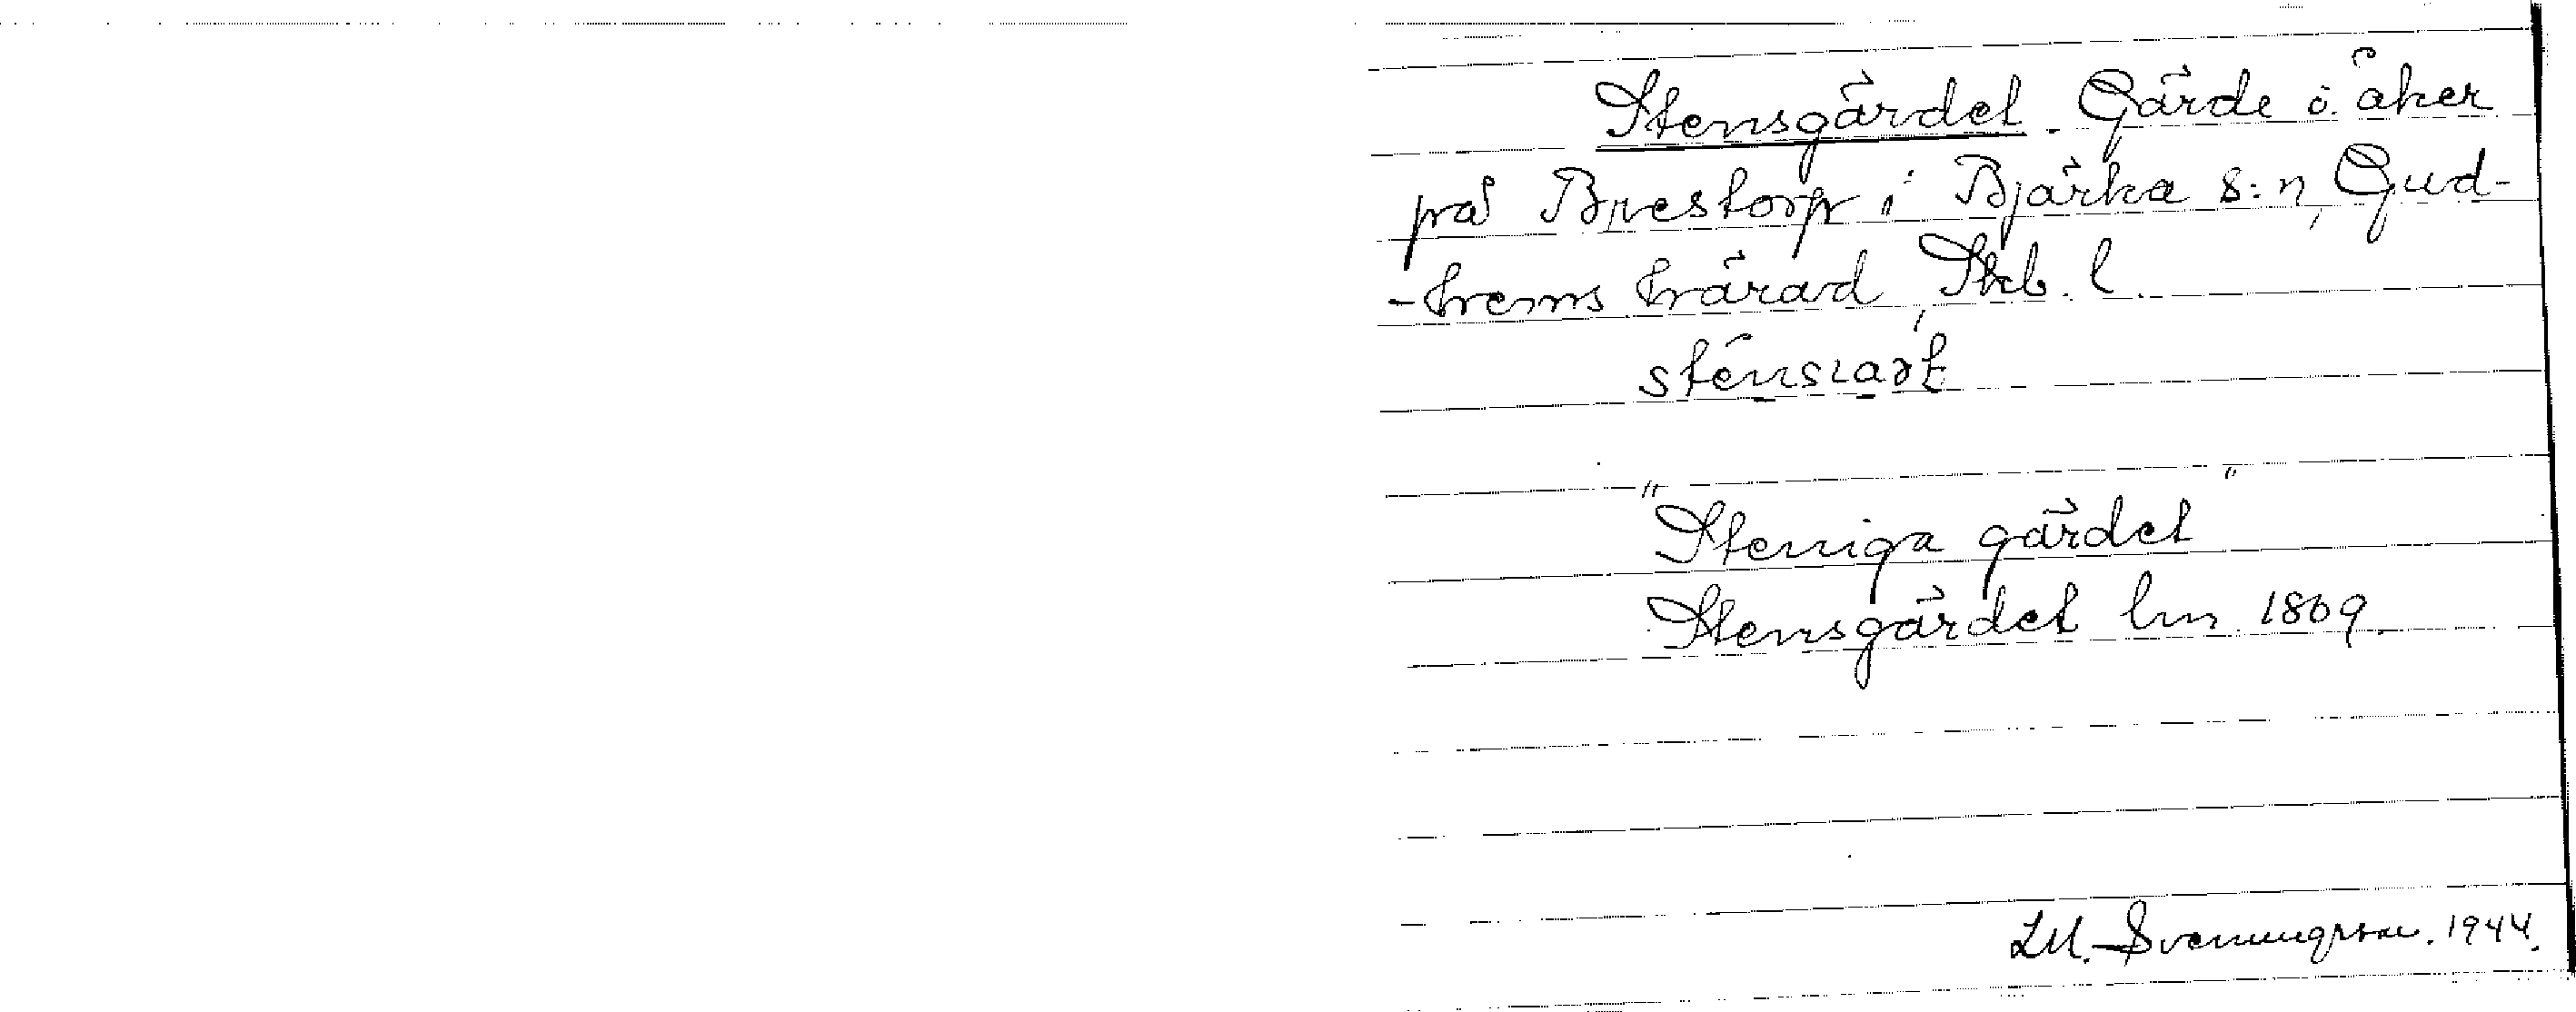 Stensgärdet. Gärde o. åker
på Brestorp i Bjärka s:n, Gud-
-hems härad, Skb. l.
"Steniga gärdet"
Stensgärdet lm 1869.
Svenungsson. 1944.